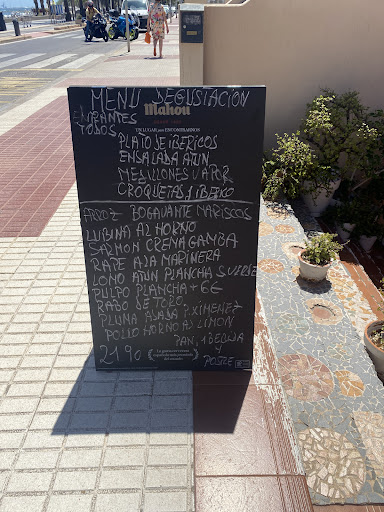 MENU DEGUSTACION
ENTRANTES
TODOS
Mahou
UN LUGAR para ENCONTRARNOS
PLATO SE IBERICOS
ENSALADA ATUN
MEJILLONES VAPOR
CROQUETAS 1 IBERICO
ARROZ BOGAVANTE MARISCOS
LUBINA AL HORNO
SALMON CREMA GAMBA
RAPE A LA MARINERA
LOMO ATUN PLANCHA
PULPO PLANCHA + 6€
RABO DE TORO
PLUMA ASADA P. XIMENEZ
POLLO HORNO AS LIMON
PAN, 1 BEBIDA
Y
POSTRE
21'90